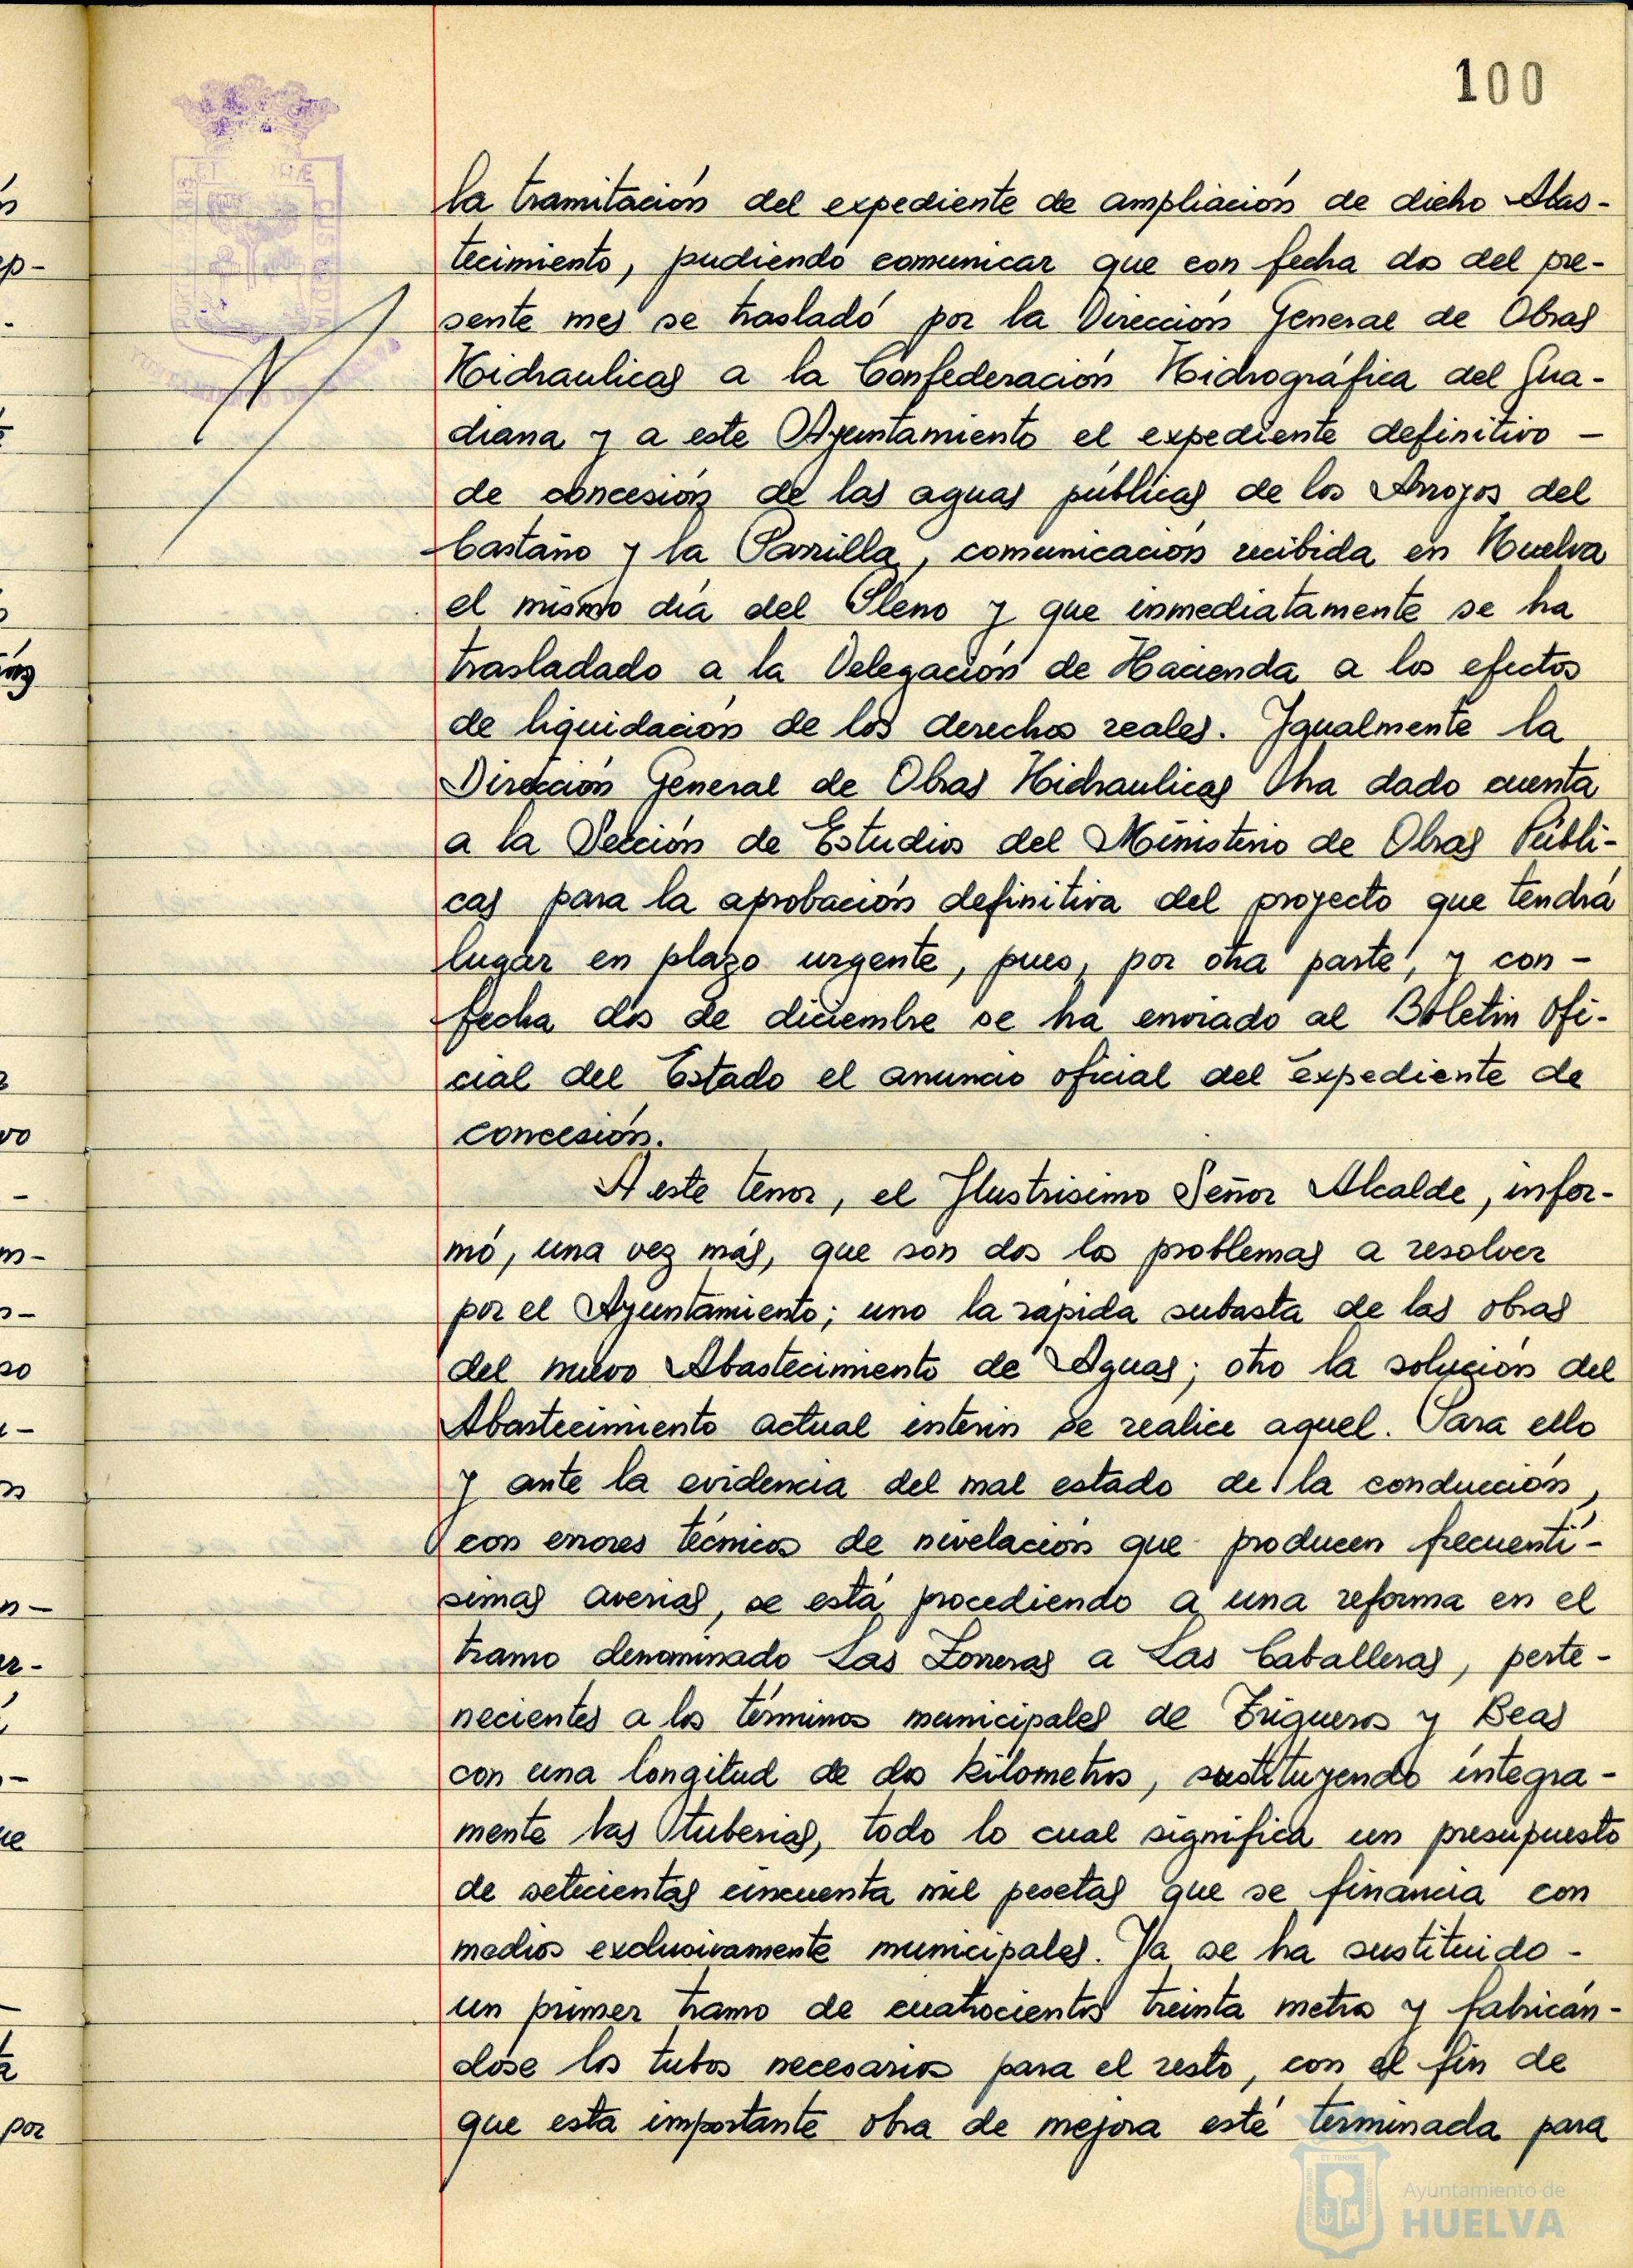 100
la tramitación del expediente de ampliación de dicho Abas-
tecimiento, pudiendo comunicar que con fecha dos del pre-
sente mes se trasladó por la Dirección General de Obras
Hidraulicas a la Confederación Hidrográfica del Gua-
diana y a este Ayuntamiento el expediente definitivo -
de concesión de las aguas públicas de los Arroyos del
Castaño y la Parrilla, comunicación recibida en Huelva
el mismo día del Pleno y que inmediatamente se ha
trasladado a la Delegación de Hacienda a los efectos
de liquidación de los derechos reales. Igualmente la
Dirección General de Obras Hidraulicas ha dado cuenta
a la Sección de Estudios del Ministerio de Obras Públi-
cas para la aprobación definitiva del proyecto que tendrá
lugar en plazo urgente, pues, por otra parte, y con -
fecha dos de diciembre se ha enviado al Boletin Ofi-
cial del Estado el anuncio oficial del expediente de
concesión.
A este tenor, el Ilustrisimo Señor Alcalde, infor-
mó, una vez más, que son dos los problemas a resolver
por el Ayuntamiento; uno la rápida subasta de las obras
del nuevo Abastecimiento de Aguas; otro la solución del
Abastecimiento actual interin se realice aquel. Para ello
y ante la evidencia del mal estado de la conducción,
con errores técnicos de nivelación que producen frecuentí-
simas averias, se está procediendo a una reforma en el
tramo denominado Las Zorreras a Las Caballeras, perte-
necientes a los términos municipales de Trigueros y Beas
con una longitud de dos kilometros, sustituyendo integra-
mente las tuberias, todo lo cual significa un presupuesto
de setecientas cincuenta mil pesetas que se financia con
medios exclusivamente municipales. Ya se ha sustituido -
un primer tramo de cuatrocientos treinta metros y fabrican-
dose los tubos necesarios para el resto, con el fin de
que esta importante obra de mejora esté terminada para
Ayuntamiento de
HUELVA